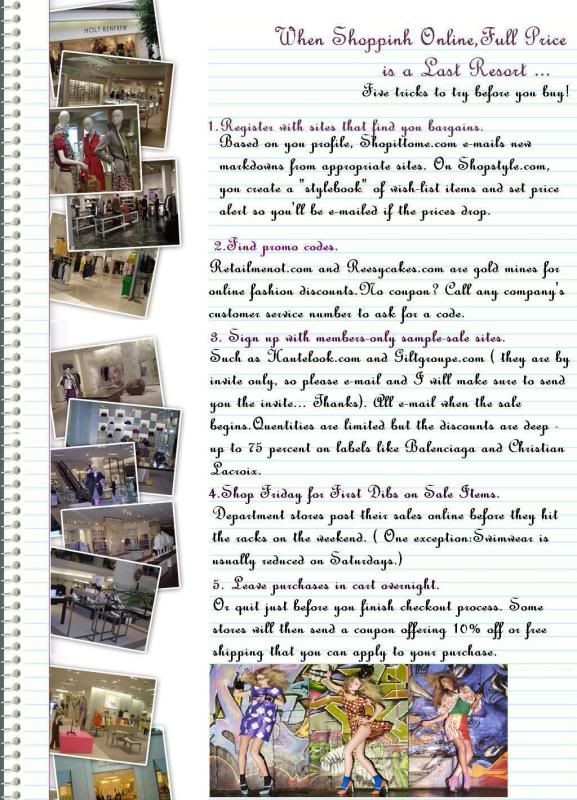 HOLT RENFREW
When Shoppinh Online,Full Price
is a Last Resort ...
Five tricks to try before you buy!
1.Register with sites that find you bargains.
Based on you profile, Shopittome.com e-mails new
markdowns from appropriate sites. On Shopstyle.com,
you create a "stylebook" of wish-list items and set price
alert so you'll be e-mailed if the prices drop.
2.Find promo codes.
Retailmenot.com and Reesycakes.com are gold mines for
online fashion discounts.No coupon? Call any company's
customer service number to ask for a code.
3. Sign up with members-only sample-sale sites.
Such as Hautelook.com and Giltgroupe.com ( they are by
invite only, so please e-mail and I will make sure to send
you the invite... Thanks). All e-mail when the sale
begins.Quentities are limited but the discounts are deep -
up to 75 percent on labels like Balenciaga and Christian
Lacroix.
4.Shop Friday for First Dibs on Sale Items.
Department stores post their sales online before they hit
the racks on the weekend. ( One exception:Swimwear is
usually reduced on Saturdays.)
5. Leave purchases in cart overnight.
Or quit just before you finish checkout process. Some
stores will then send a coupon offering 10% off or free
shipping that you can apply to your purchase.